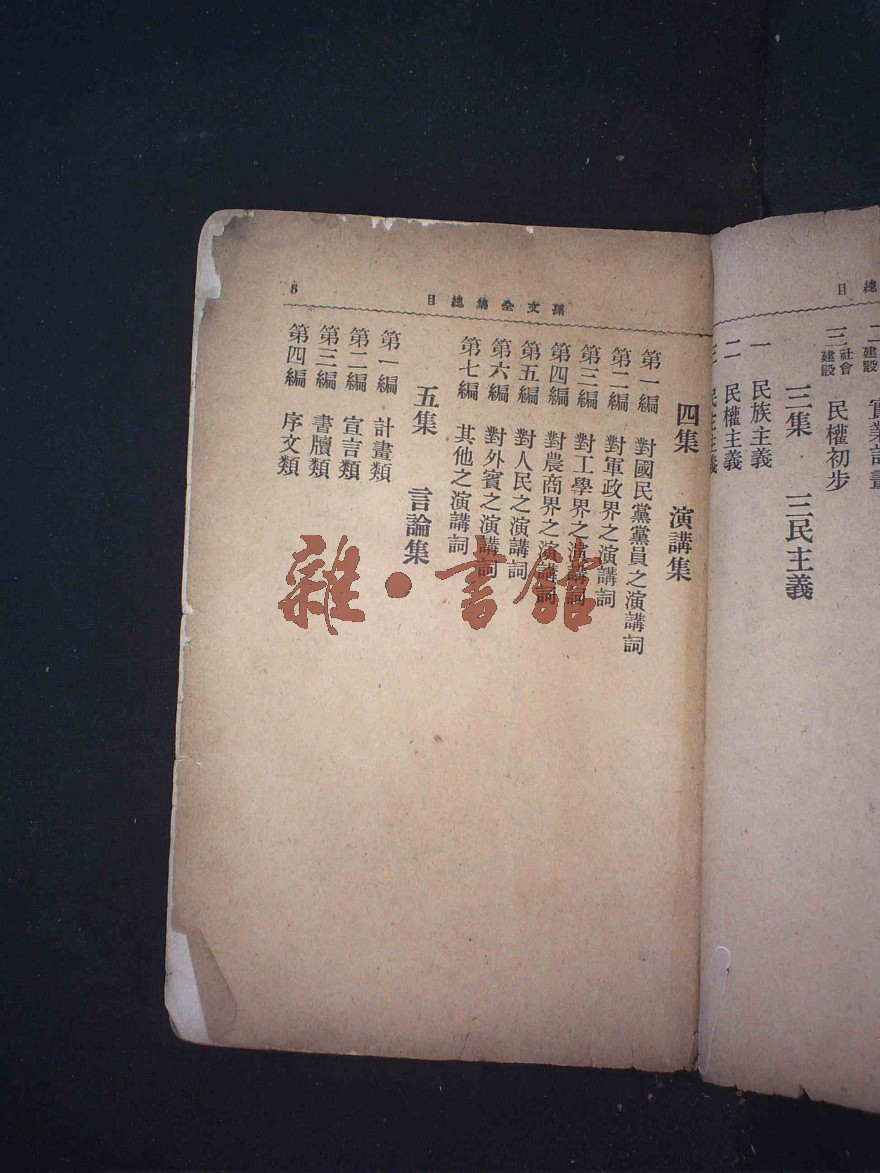 總目
二 建設 實業計畫
三 社會建設 民權初步
三集 三民主義
一 民族主義
二 民權主義
三 民生主義
孫文全集總目
6
四集 演講集
第一編 對國民黨黨員之演講詞
第二編 對軍政界之演講詞
第三編 對工學界之演講詞
第四編 對農商界之演講詞
第五編 對人民之演講詞
第六編 對外賓之演講詞
第七編 其他之演講詞
五集 言論集
第一編 計畫類
第二編 宣言類
第三編 書牘類
第四編 序文類
雜·書館